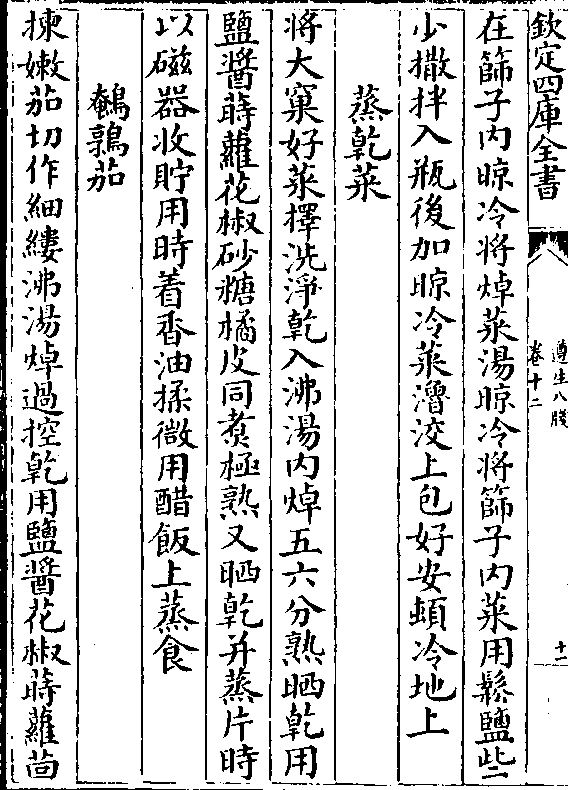 欽定四庫全書
遵生八牋
卷十二
十一
在篩子内晾冷將焯菜湯晾冷將篩子内菜用鬆鹽些
少撒拌入瓶後加晾冷菜滷洨上包好安頓冷地上
蒸乾菜
將大窠好菜擇洗淨乾入沸湯内焯五六分熟晒乾用
鹽醬蒔蘿花椒砂糖橘皮同煮極熟又晒乾并蒸片時
以磁器收貯用時着香油揉微用醋飯上蒸食
鵪鶉茄
揀嫩茄切作細縷沸湯焯過控乾用鹽醬花椒蒔蘿茴